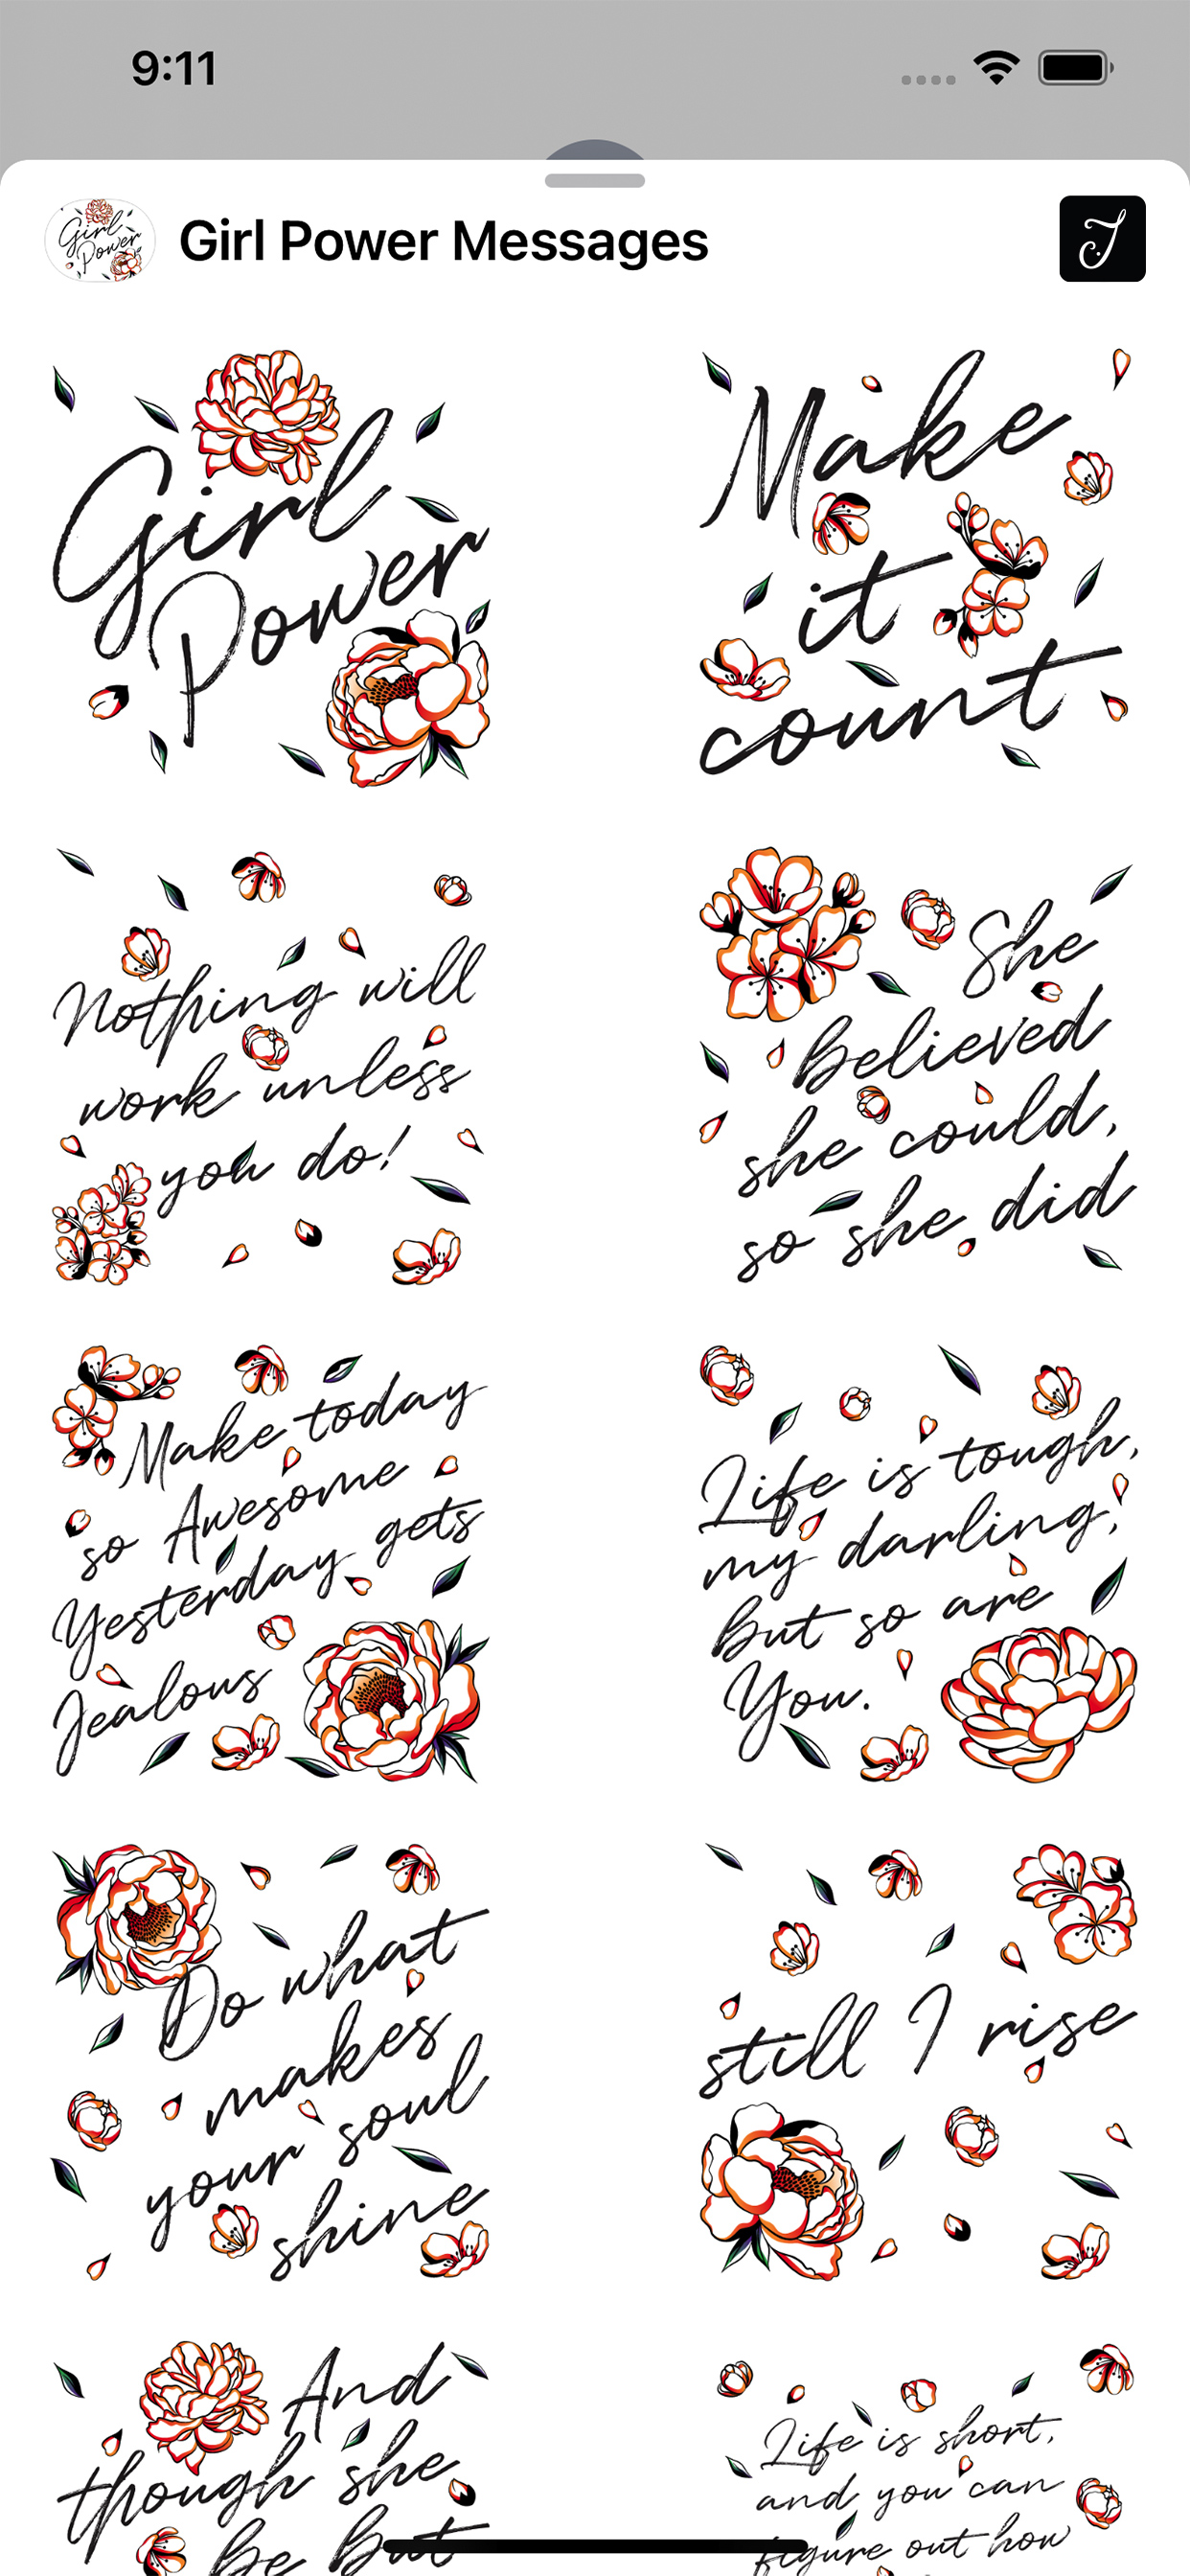 9:11
Girl Power
Girl Power Messages
J
Girl
Power
Make
it
count
Nothing will
work unless
you do!
She
Believed
she could,
so she did
Make today
so Awesome
Yesterday gets
Jealous
Life is tough,
my darling,
But so are
You.
Do what
makes
your soul
shine
still I rise
And
though she
be But
Life is short,
and you can
figure out how